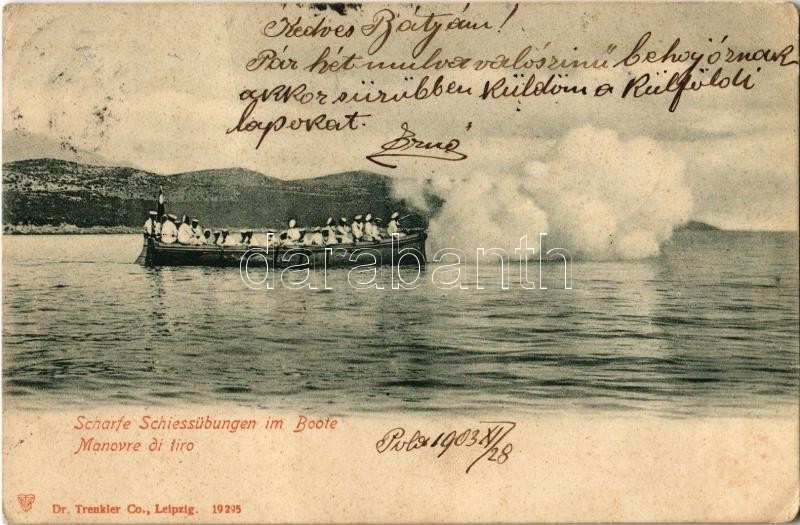 Kedves Bátyám!
Pár hét mulva valószinü behajóznak
akkor sürübben küldöm a külföldi
lapokat.
Ernő
darabanth
Scharfe Schiessübungen im Boote
Manovre di tiro
Pola 1903 XI/28
Dr. Trenkler Co., Leipzig. 19295